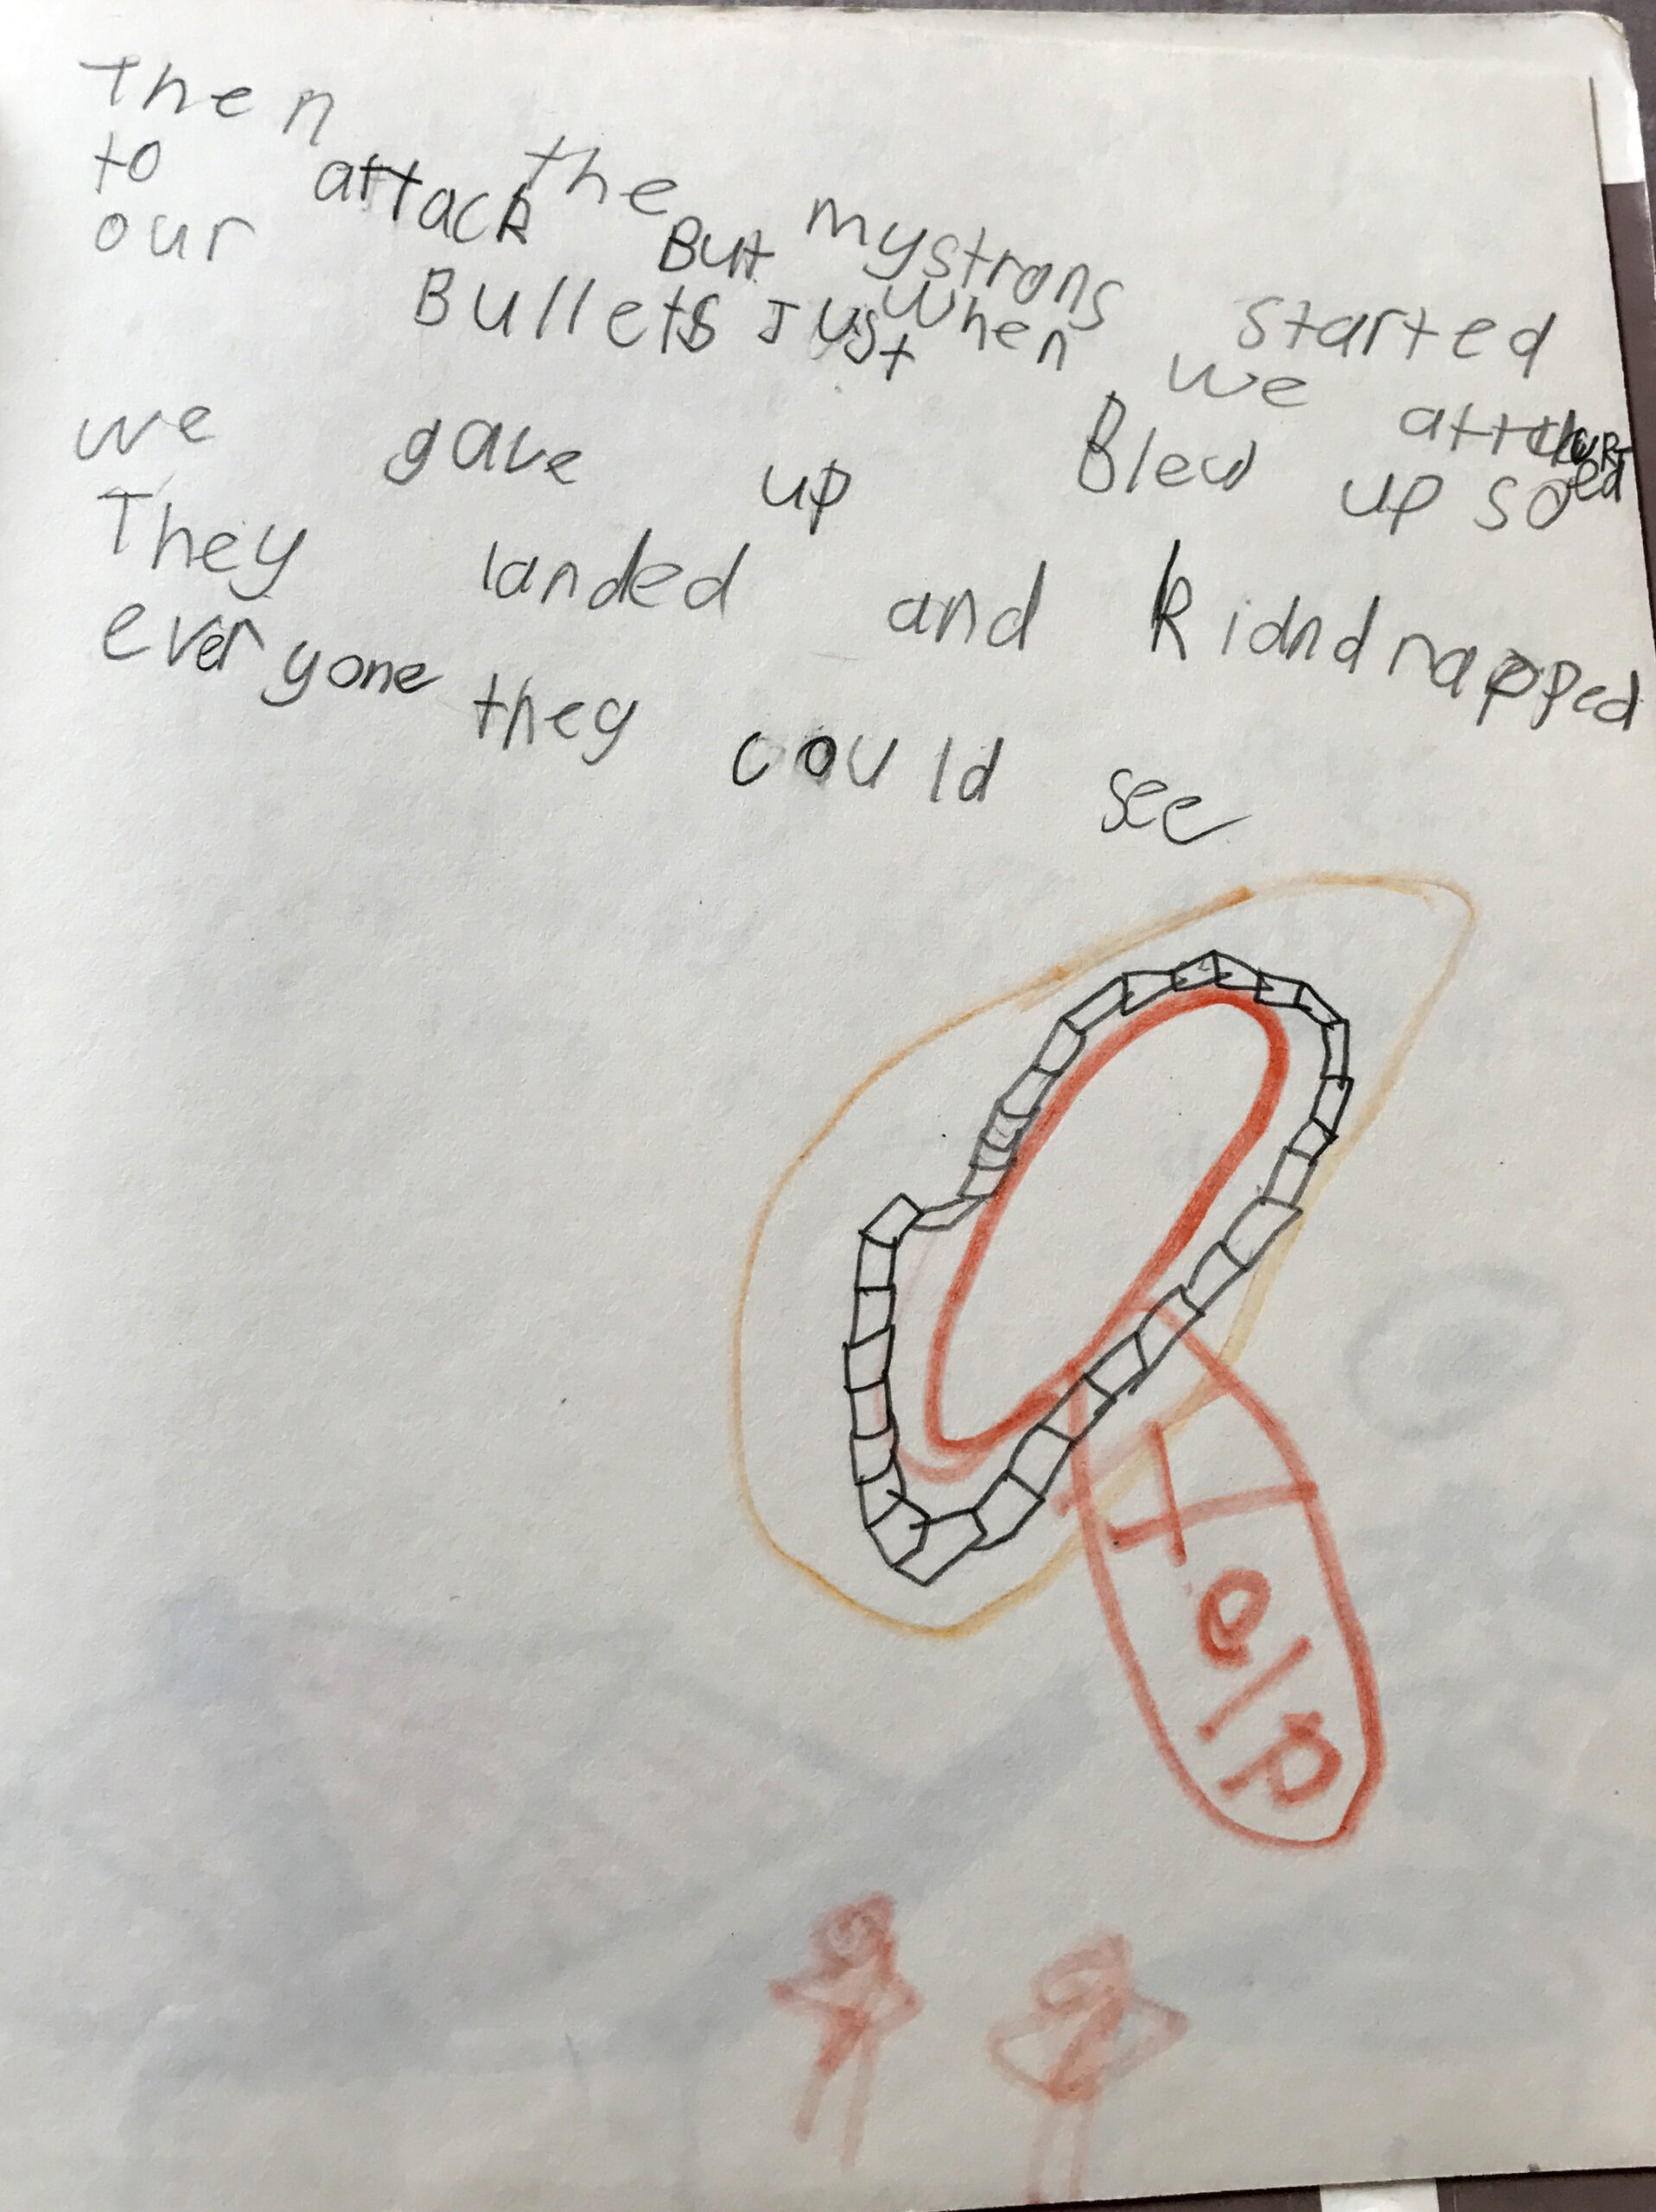 Then the mystrons started
to attack But when we
our Bullets Just Blew up so
we gave up
They landed and kidndnapped
everyone they could see
Help